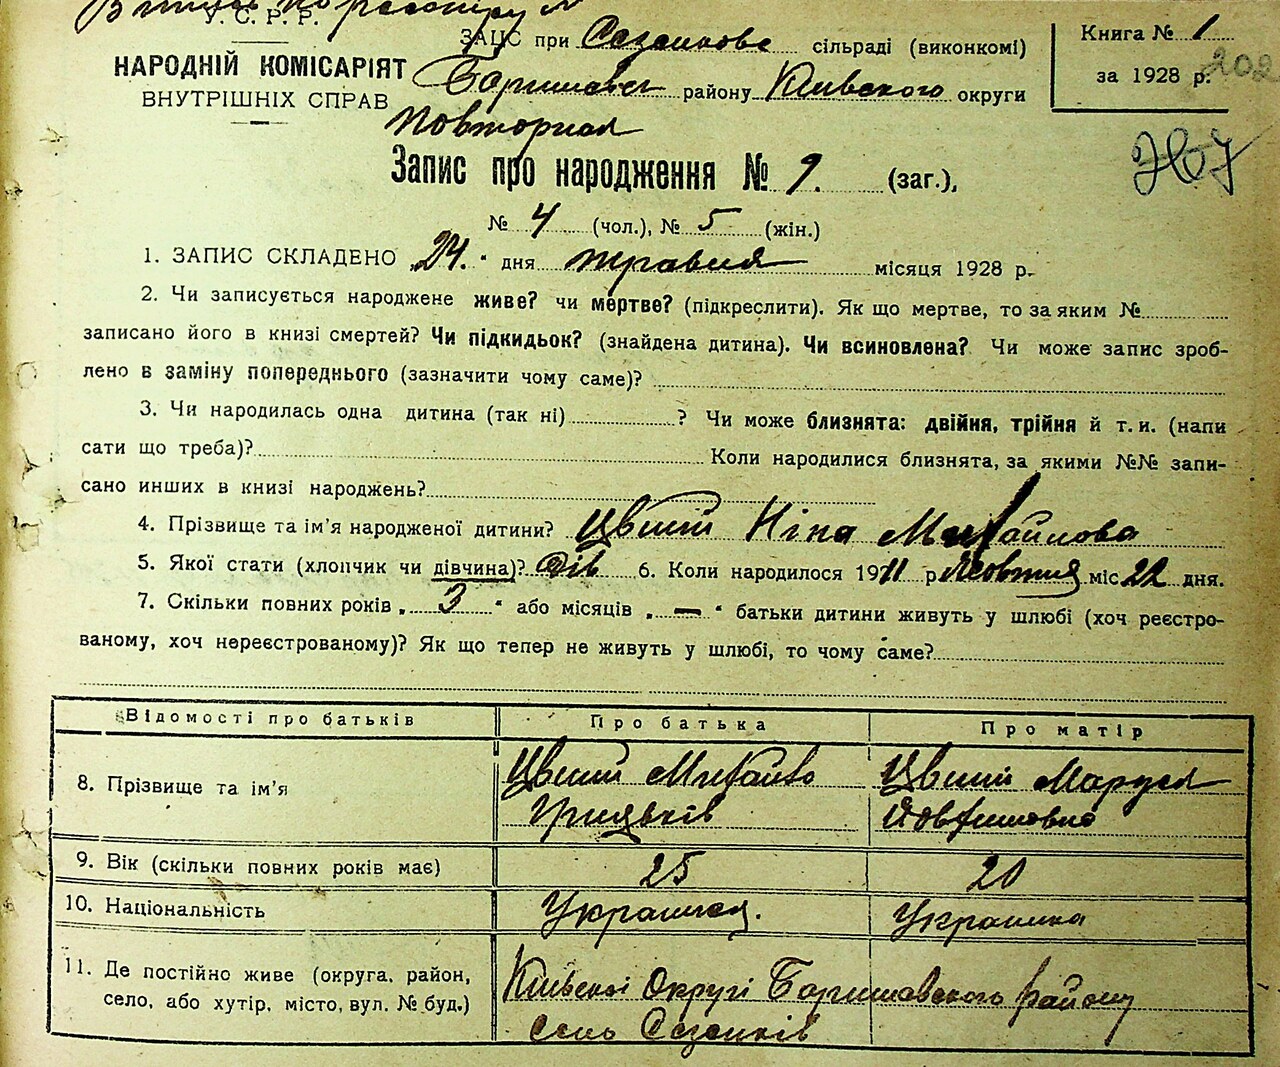 У. С. Р. Р.
НАРОДНІЙ КОМІСАРІЯТ
ВНУТРІШНІХ СПРАВ
ЗАЦС при Сезенкове сільраді (виконкомі)
району Київского округи
Книга № 1
за 1928 р. 202
Повторная
Запис про народження № 9. (заг.),
№ 4 (чол.), № 5 (жін.)
1. ЗАПИС СКЛАДЕНО „24.“ дня травня місяця 1928 р.
2. Чи записується народжене живе? чи мертве? (підкреслити). Як що мертве, то за яким №
записано його в книзі смертей? Чи підкидьок? (знайдена дитина). Чи всиновлена? Чи може запис зроб-
лено в заміну попереднього (зазначити чому саме)?
3. Чи народилась одна дитина (так ні) ? Чи може близнята: двійня, трійня й т. и. (напи
сати що треба)? Коли народилися близнята, за якими №№ запи-
сано инших в книзі народжень?
4. Прізвище та ім'я народженої дитини? Цвший Ніна Михайлова
5. Якої стати (хлопчик чи дівчина)? Дів 6. Коли народилося 1911 р Жовтня міс 22 дня.
7. Скільки повних років „ 3 “ або місяців „ — “ батьки дитини живуть у шлюбі (хоч реєстро-
ваному, хоч нереєстрованому)? Як що тепер не живуть у шлюбі, то чому саме?
Відомості про батьків Про батька Про матір
8. Прізвище та ім'я
Михайло
Грицьків
Маруся
Йовхимовна
9. Вік (скільки повних років має) 25 20
10. Національність Украинец. Украинка
11. Де постійно живе (округа, район,
село, або хутір, місто, вул. № буд.)
Київскоі Округі Баришавского району
село Сезенків